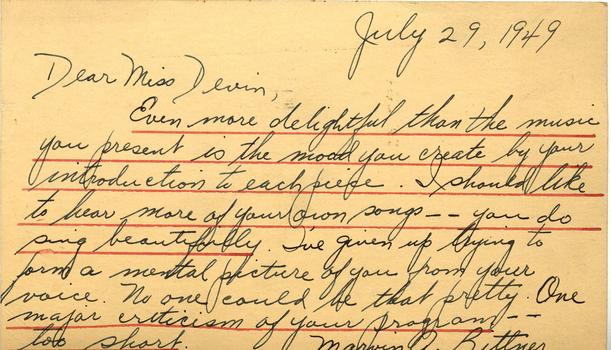 July 29, 1949
Dear Miss Devin,
Even more delightful than the music
you present is the mood you create by your
introduction to each piece. I should like
to hear more of your own songs -- you do
sing beautifully. I've given up trying to
form a mental picture of you from your
voice. No one could be that pretty. One
major criticism of your program --
too short. Marvin Bittner